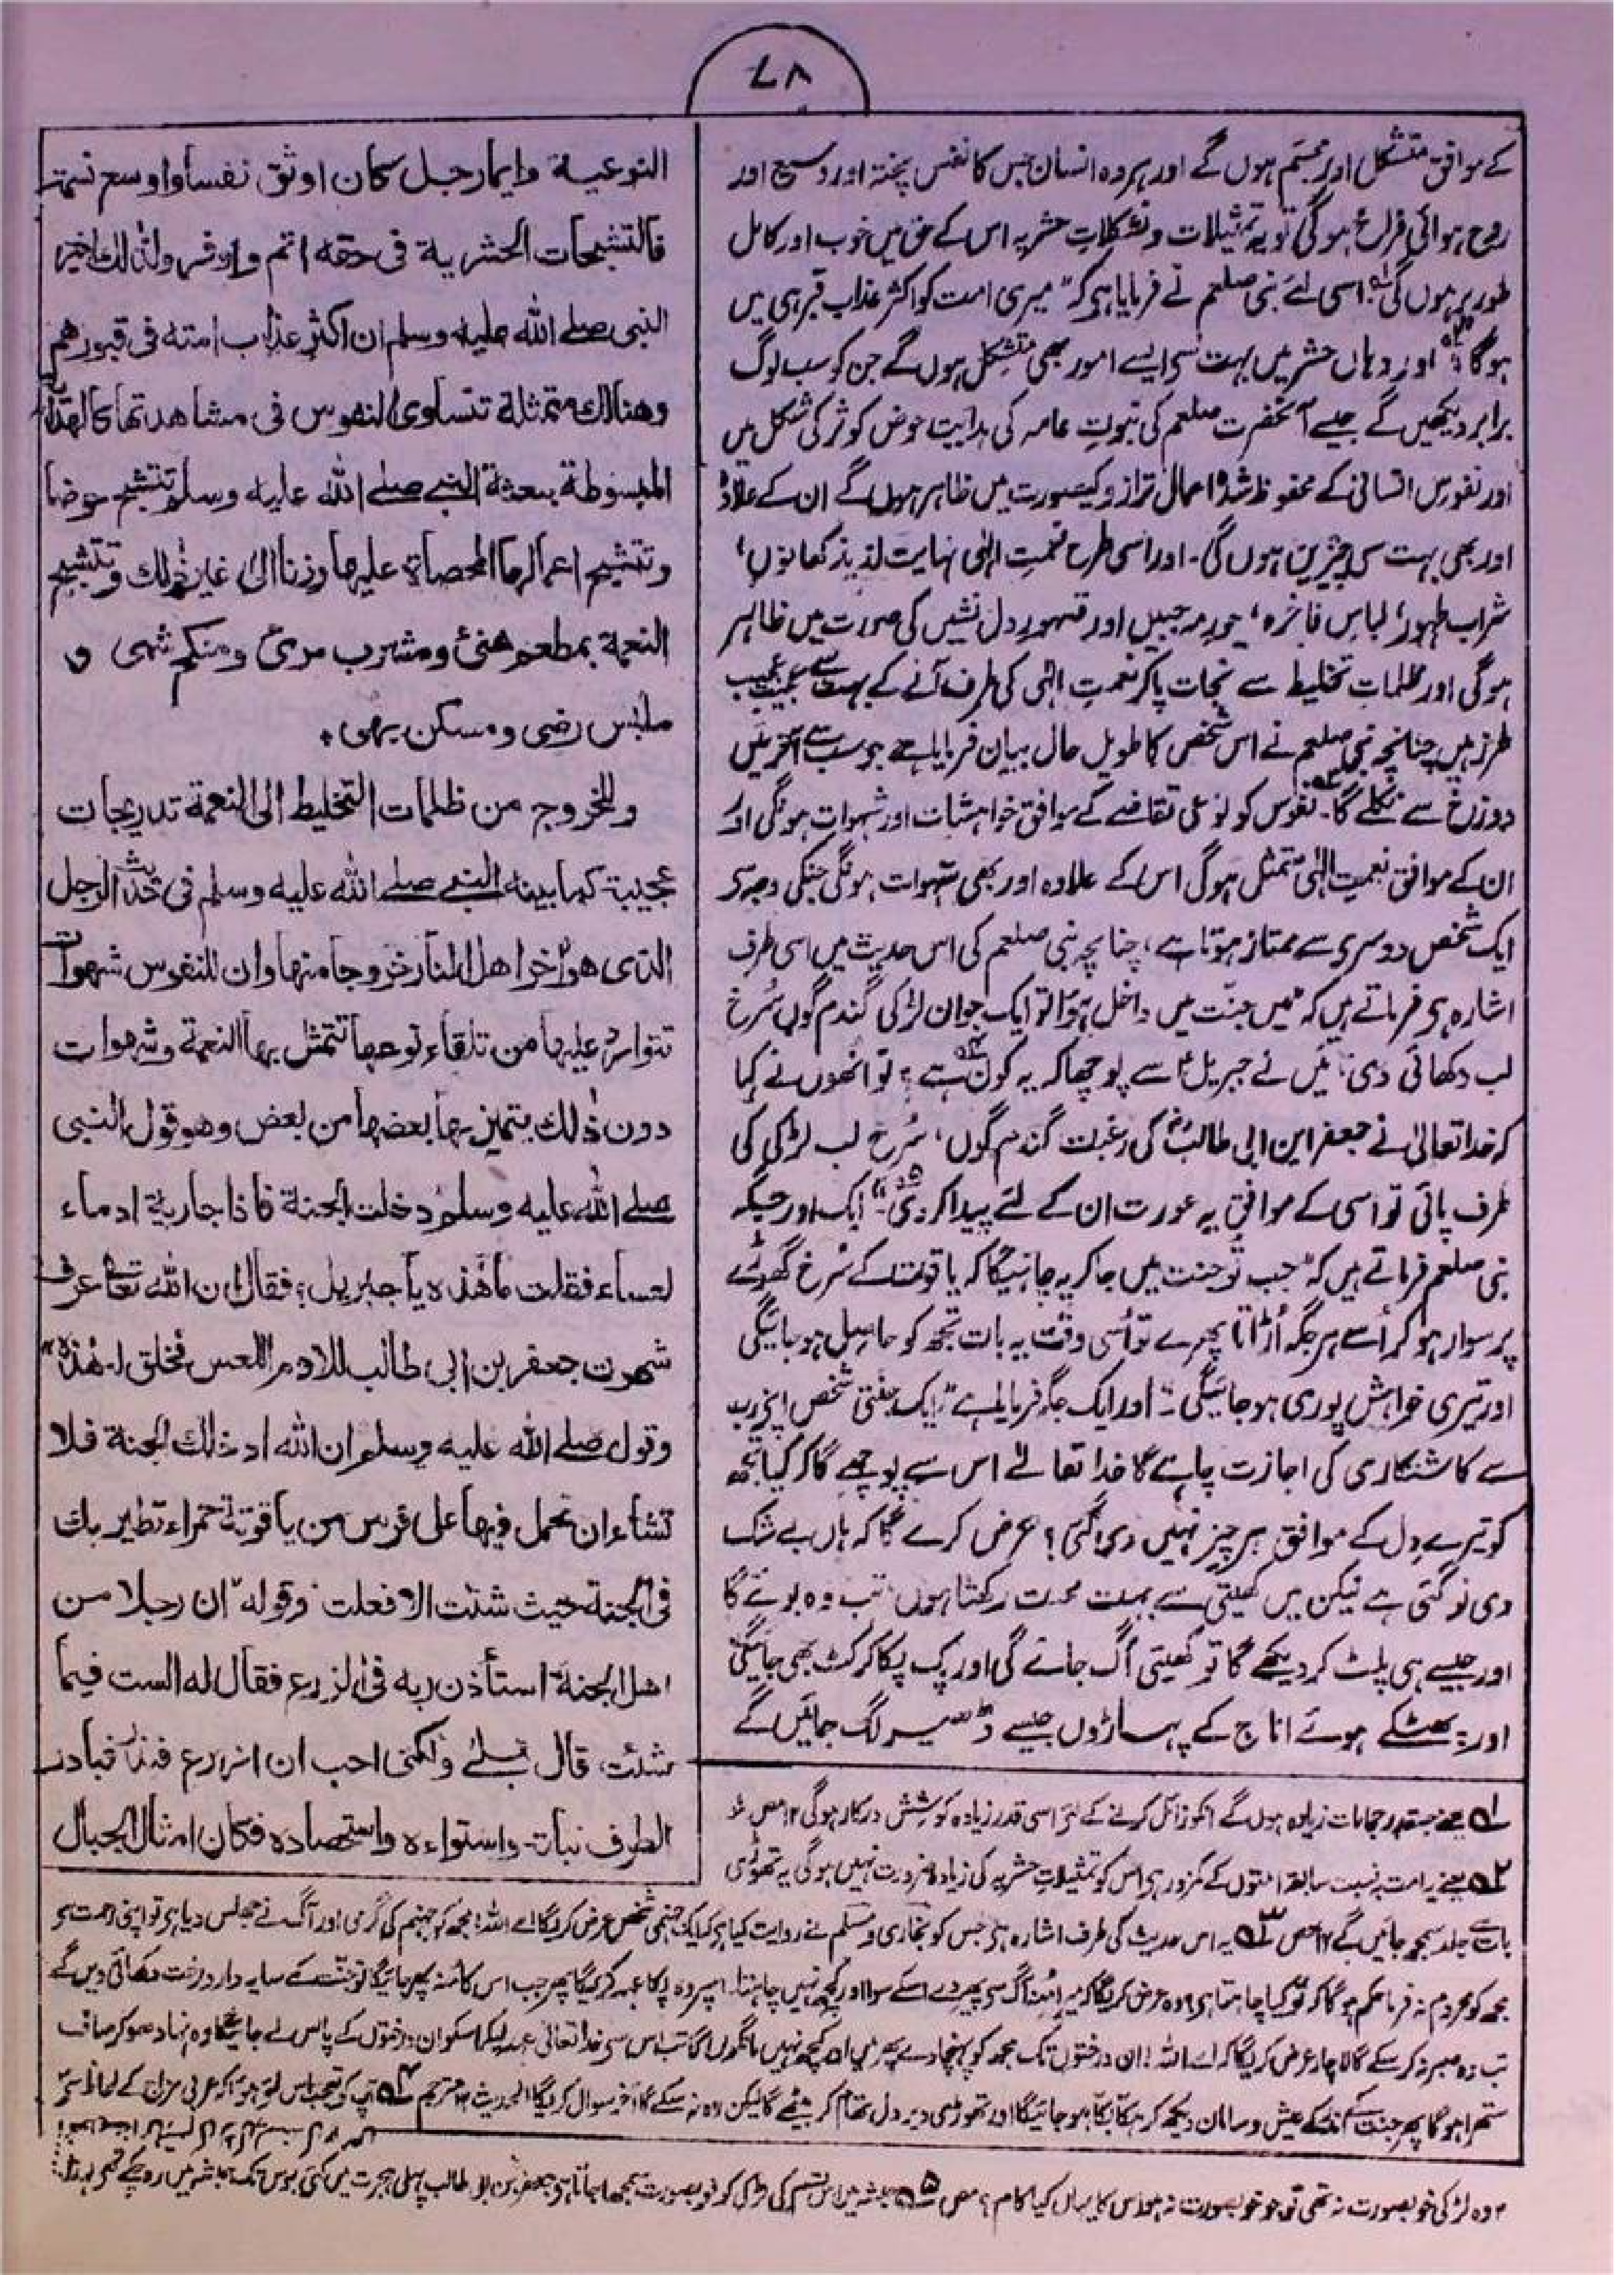 ۷۸
کے موافق متشکل اور مجسّم ہوں گے اور ہر وہ انسان جس کا نفس پختہ اور وسیع اور
روح ہوائی فراخ ہوگی تو یہ تمثیلات و تشکلاتِ حشریہ اس کے حق میں خوب اور کامل
طور پر ہوں گی؛ اسی لئے نبی صلعم نے فرمایا ہی کہ "میری امت کو اکثر عذاب قبر ہی میں
ہوگا" اور وہاں حشر میں بہت سی ایسے امور بھی متشکل ہوں گے جن کو سب لوگ
برابر دیکھیں گے جیسے آنحضرت صلعم کی نبوتِ عامہ کی ہدایت حوض کوثر کی شکل میں
اور نفوس انسانی کے محفوظ شدہ اعمال ترازو کیصورت میں ظاہر ہوں گے ان کے علاوہ
اور بھی بہت سی چیزیں ہوں گی۔ اور اسی طرح نعمتِ الٰہی نہایت لذیذ کھانوں،
شراب طہور، لباسِ فاخرہ، حورِ مہ جبیں اور قصورِ دل نشیں کی صورت میں ظاہر
ہوگی اور ظلماتِ تخلیط سے نجات پاکر نعمتِ الٰہی کی طرف آنے کے بہت سے عجیب عجیب
طرز ہیں چنانچہ نبی صلعم نے اس شخص کا طویل حال بیان فرمایا ہے جو سب سے آخر میں
دوزخ سے نکلے گا۔ نفوس کو نوعی تقاضے کے موافق خواہشات اور شہوات ہونگی اور
ان کے موافق نعمتِ الٰہی متمثل ہوگی اس کے علاوہ اور بھی شہوات ہونگی جنکی وجہ سے
ایک شخص دوسری سے ممتاز ہوتا ہے، چنانچہ نبی صلعم کی اس حدیث میں اسی طرف
اشارہ ہی فرماتے ہیں کہ "میں جنّت میں داخل ہوا تو ایک جوان لڑکی گندم گوں سُرخ
لب دکھائی دی؛ میں نے جبریلؑ سے پوچھا کہ یہ کون ہے؟ تو انھوں نے کہا
کہ خدا تعالیٰ نے جعفر ابن ابی طالبؓ کی رغبت گندم گوں، سُرخ لب لڑکی کی
طرف پائی تو اسی کے موافق یہ عورت ان کے لئے پیدا کردی"۔ ایک اور جگہ
نبی صلعم فرماتے ہیں کہ "جب تو جنت میں جاکر یہ چاہیگا کہ یاقوت کے سُرخ گھوڑے
پر سوار ہوکر اُسے ہر جگہ اُڑاتا پھرے تو اُسی وقت یہ بات تجھ کو حاصل ہوجائیگی
اور تیری خواہش پوری ہوجائیگی"۔ اور ایک جگہ فرمایا ہے "ایک جنتی شخص اپنے رب
سے کاشتکاری کی اجازت چاہے گا خدا تعالےٰ اس سے پوچھے گا کہ کیا تجھ
کو تیرے دل کے موافق ہر چیز نہیں دی گئی؟ عرض کرے گا کہ ہاں بے شک
دی تو گئی ہے لیکن میں کھیتی سے بہت محبت رکھتا ہوں، تب وہ بوئے گا
اور جیسے ہی پلٹ کر دیکھے گا تو کھیتی اُگ جائے گی اور پک پکاکر کٹ بھی جائیگی
اور پھٹکے ہوئے اناج کے پہاڑوں جیسے ڈھیر لگ جائیں گے
النوعية وايما رجل كان اوثق نفسا واوسع نسمة
فالتشبحات الحشرية فى حقه اتم واوفر ولذلك اخبر
النبى صلے الله عليه وسلم ان اكثر عذاب امته فى قبورهم
وهنالك متمثلة تتساوى النفوس فى مشاهدتها كالهداية
المبسوطة ببعثة النبى صلے الله عليه وسلم تتشبح حوضا
وتتشبح اعمالها المحصاة عليها وزنا الى غير ذلك وتتشبح
النعمة بمطعم هنئ ومشرب مرئ ومنكح شهى و
ملبس رضى ومسكن بهى۔
وللخروج من ظلمات التخليط الى النعمة تدريجات
عجيبة كما بينه النبى صلے الله عليه وسلم فى حديث الرجل
الذى هو آخر اهل النار خروجا منها وان للنفوس شهوات
تتوارد عليها من تلقاء نوعها تتمثل بها النعمة وشهوات
دون ذلك يتميز بها بعضها من بعض وهو قول النبى
صلے الله عليه وسلم دخلت الجنة فاذا جارية ادماء
لعساء فقلت ما هذه يا جبريل؟ فقال ان الله تعالى عرف
شهوة جعفر بن ابى طالب للادم اللعس فخلق له هذه"
وقوله صلے الله عليه وسلم ان الله ادخلك الجنة فلا
تشاء ان تحمل فيها على فرس من ياقوتة حمراء تطير بك
فى الجنة حيث شئت الا فعلت وقوله "ان رجلا من
اهل الجنة استأذن ربه فى الزرع فقال له الست فيما
شئت، قال بلى ولكنى احب ان ازرع فبذر فبادر
الطرف نباته واستواءه واستحصاده فكان امثال الجبال
۱؎ یعنے جسقدر حجابات زیادہ ہوں گے انکو زائل کرنے کے لئے اسی قدر زیادہ کوشش درکار ہوگی ۱۲
۲؎ یعنے یہ امت بہ نسبت سابقہ امتوں کے کمزور ہی اس کو تمثیلاتِ حشریہ کی زیادہ ضرورت نہیں ہوگی یہ تھوڑی
بات سے جلد سمجھ جائیں گے ۱۲ ۳؎ یہ اس حدیث کی طرف اشارہ ہی جس کو بخاری و مسلم نے روایت کیا ہی کہ ایک جہنمی شخص عرض کریگا اے اللہ! مجھ کو جہنم کی گرمی اور آگ نے جھلس دیا ہی تو اپنی رحمت سے
مجھ کو محروم نہ فرما حکم ہوگا کہ تو کیا چاہتا ہی وہ عرض کریگا کہ میرا منہ آگ سی پھیر دے اسکے سوا اور کچھ نہیں چاہتا۔ اسپر وہ پکا عہد کریگا پھر جب اس کا منہ پھر جائیگا تو جنت کے سایہ دار درخت دکھائی دیں گے
تب وہ صبر نہ کرسکے گا لاچار عرض کریگا کہ اے اللہ! ان درختوں تک مجھ کو پہنچادے پھر میں اور کچھ نہیں مانگوں گا تب اس سی خدا تعالیٰ عہد لیکر اسکو ان درختوں کے پاس لے جائیگا وہ نہا دھوکر صاف
ستھرا ہوگا پھر جنت کے اندر کے عیش و سامان دیکھ کر ہکا بکا ہوجائیگا اور تھوڑی دیر دل تھام کر بیٹھے گا لیکن رہ نہ سکے گا آخر سوال کریگا الحدیث ۱۲ مترجم ۴؎ آپ کو تعجب اس لئے ہوا کہ عربی مزاج کے لحاظ سے
وہ لڑکی خوبصورت نہ تھی تو جو خوبصورت نہ ہو اس کا یہاں کیا کام؟ ۵؎ حبشہ میں اس قسم کی لڑکی کو خوبصورت سمجھا جاتا ہی جعفر بن ابی طالب پہلی ہجرت میں کئی برس تک حبشہ میں رہ چکے تھے